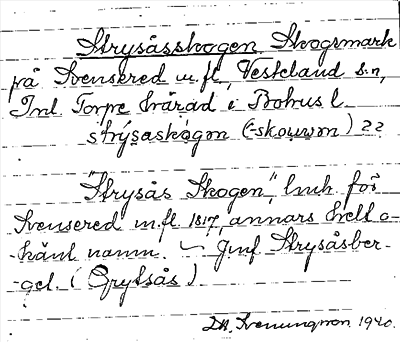 Strysåsskogen Skogsmark
på Svensered m.fl., Veskeland s:n,
Inl Torpe härad i Bohusl.
strýsaskogon (-skouwon) 22
"Strysås Skogen", lmh för
Svensered m.fl. 1817, annars helt o-
-känt namn. – Jmf Strysåsber-
-get. (Grytsås)
Svenungsson 1940.